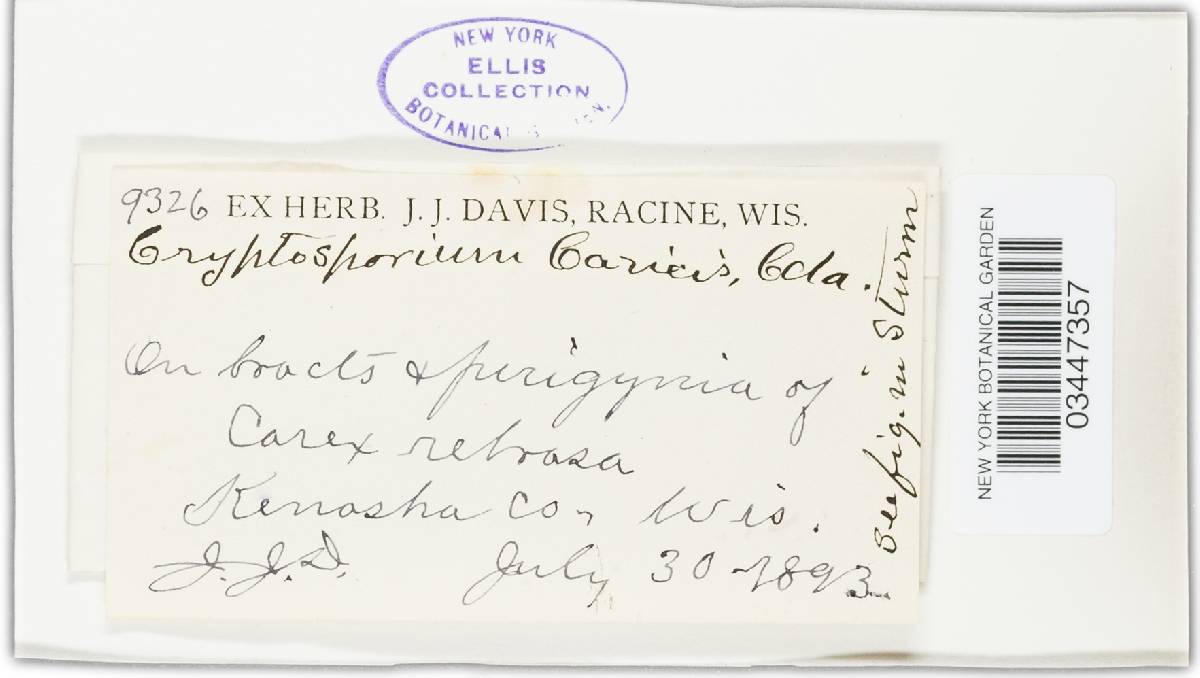 NEW YORK
ELLIS
COLLECTION
BOTANICAL
9326 EX HERB. J. J. DAVIS, RACINE, WIS.
Cryptosporium Caricis, Cda.
On bracts & perigynia of
Carex retrorsa
Kenosha Co., Wis.
J. J. D. July 30 - 1893
See fig. in Sturm
NEW YORK BOTANICAL GARDEN
03447357